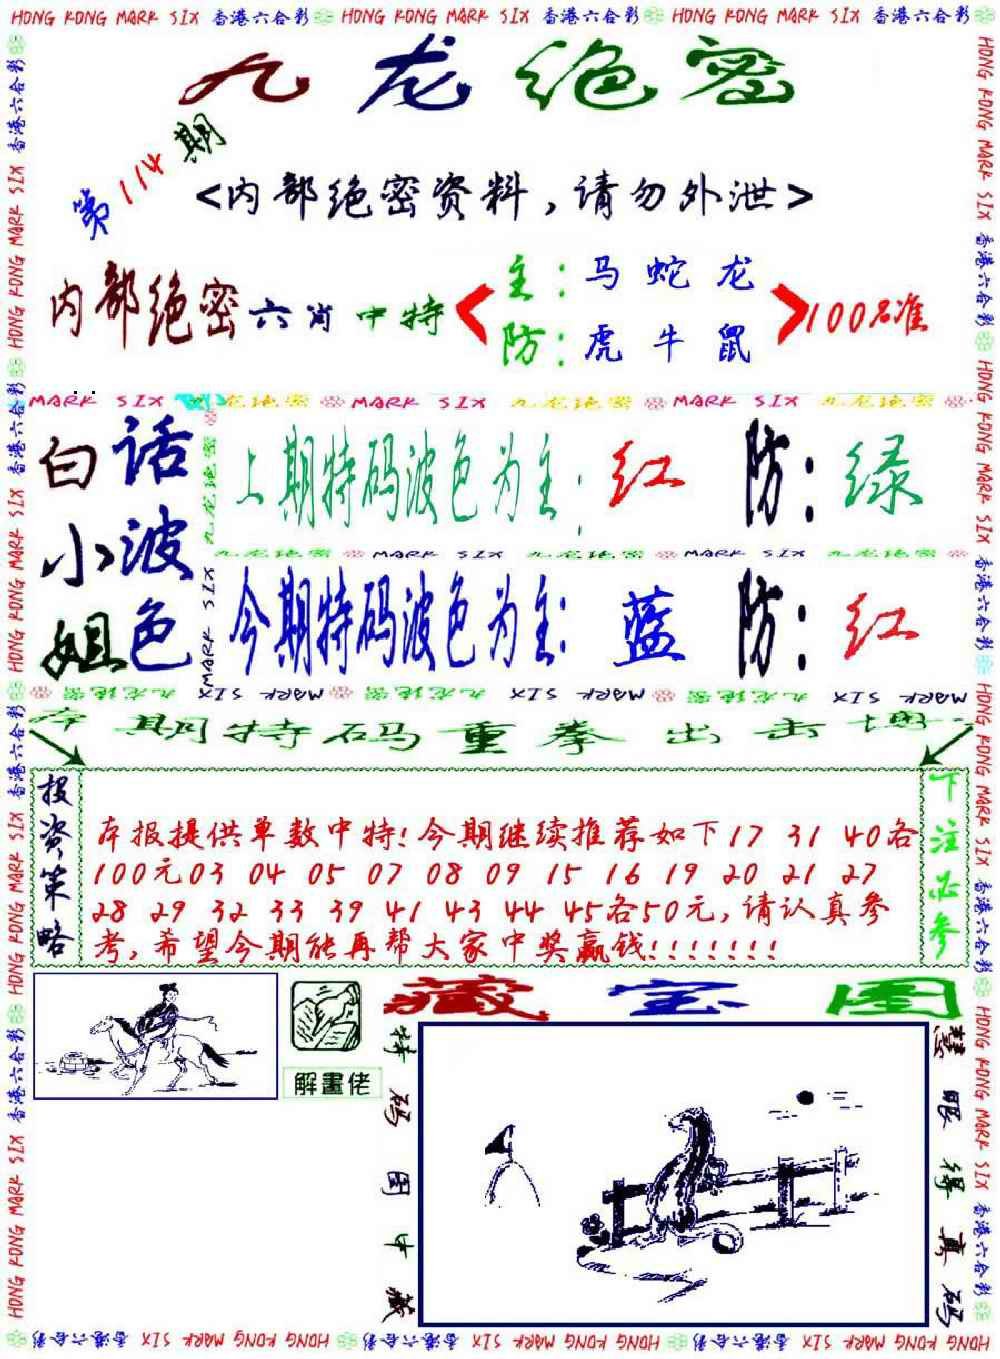 HONG KONG MARK SIX 香港六合彩 HONG KONG MARK SIX 香港六合彩 HONG KONG MARK SIX 香港六合彩
九龙绝密
第114期
<内部绝密资料，请勿外泄>
内部绝密六肖中特
主：马 蛇 龙
防：虎 牛 鼠
100%准
MARK SIX 九龙绝密 MARK SIX 九龙绝密 MARK SIX 九龙绝密
白小姐
话波色
上期特码波色为主：红 防：绿
九龙绝密 MARK SIX 九龙绝密 MARK SIX 九龙绝密
今期特码波色为主：蓝 防：红
九龙绝密 MARK SIX 九龙绝密 MARK SIX 九龙绝密 MARK SIX
本期特码重拳出击
投资策略
本报提供单数中特！今期继续推荐如下17 31 40各
100元03 04 05 07 08 09 15 16 19 20 21 27
28 29 32 33 39 41 43 44 45各50元，请认真参
考，希望今期能再帮大家中奖赢钱！！！！！！！
下注必参
解畫佬
藏宝图
特码图中藏
慧眼得真码
HONG KONG MARK SIX 香港六合彩 HONG KONG MARK SIX 香港六合彩 HONG KONG MARK SIX 香港六合彩